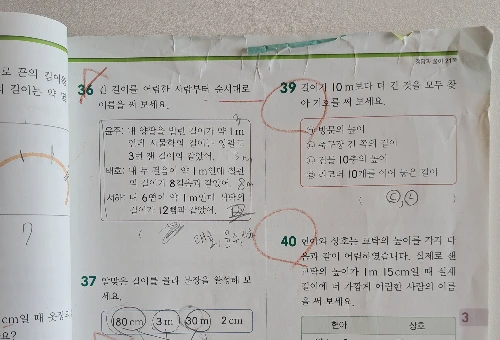 정답과 풀이 21쪽
로 끈의 길이를
의 길이는 약 몇
36 긴 길이를 어림한 사람부터 순서대로
이름을 써 보세요.
윤주: 내 양팔을 벌린 길이가 약 1 m
3번 잰 길이와 같았어.
태호: 내 두 걸음이 약 1 m인데
의 길이가 8걸음과 같았어. 8m
서하: 내 6뼘이 약 1 m인데
길이가 12뼘과 같았어.
37 알맞은 길이를 골라 문장을 완성해 보
세요.
180 cm 3 m 30 m 2 cm
39 길이가 10 m보다 더 긴 것을 모두 찾
아 기호를 써 보세요.
㉠ 방문의 높이
㉡ 축구장 긴 쪽의 길이
㉢ 건물 10층의 높이
10개를 이어 놓은 길이
㉢, ㉡
40 현아와 상호는 교탁의 높이를 각각 다
음과 같이 어림하였습니다. 실제로 잰
교탁의 높이가 1 m 15 cm일 때 실제
길이에 더 가깝게 어림한 사람의 이름
을 써 보세요.
현아 상호
3
cm일 때 옷장의
요?